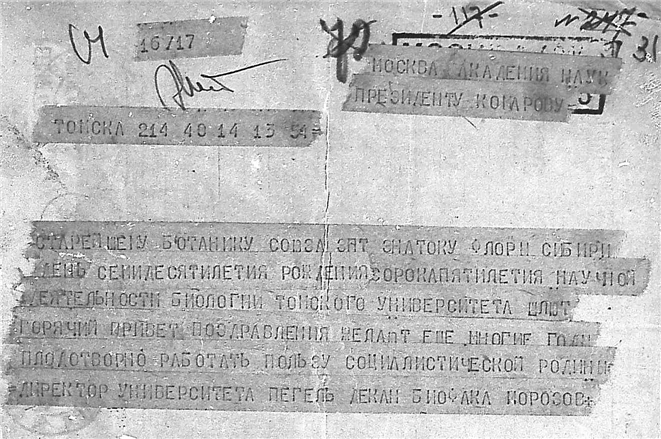 -117-
№ 247-
16/17
МОСКВА АКАДЕМИЯ НАУК
ПРЕЗИДЕНТУ КОМАРОВУ=
ТОМСКА 214 40 14 13 54=
=СТАРЕЙШЕМУ БОТАНИКУ СОЮЗА ЗПТ ЗНАТОКУ ФЛОРЫ СИБИРИ
ДЕНЬ СЕМИДЕСЯТИЛЕТИЯ РОЖДЕНИЯ СОРОКАПЯТИЛЕТИЯ НАУЧНОЙ
ДЕЯТЕЛЬНОСТИ БИОЛОГИ ТОМСКОГО УНИВЕРСИТЕТА ШЛЮТ
ГОРЯЧИЙ ПРИВЕТ ПОЗДРАВЛЕНИЯ ЖЕЛАЮТ ЕЩЕ МНОГИЕ ГОДЫ
ПЛОДОТВОРНО РАБОТАТЬ ПОЛЬЗУ СОЦИАЛИСТИЧЕСКОЙ РОДИНЫ=
=ДИРЕКТОР УНИВЕРСИТЕТА ПЕГЕЛЬ ДЕКАН БИОФАКА МОРОЗОВ+